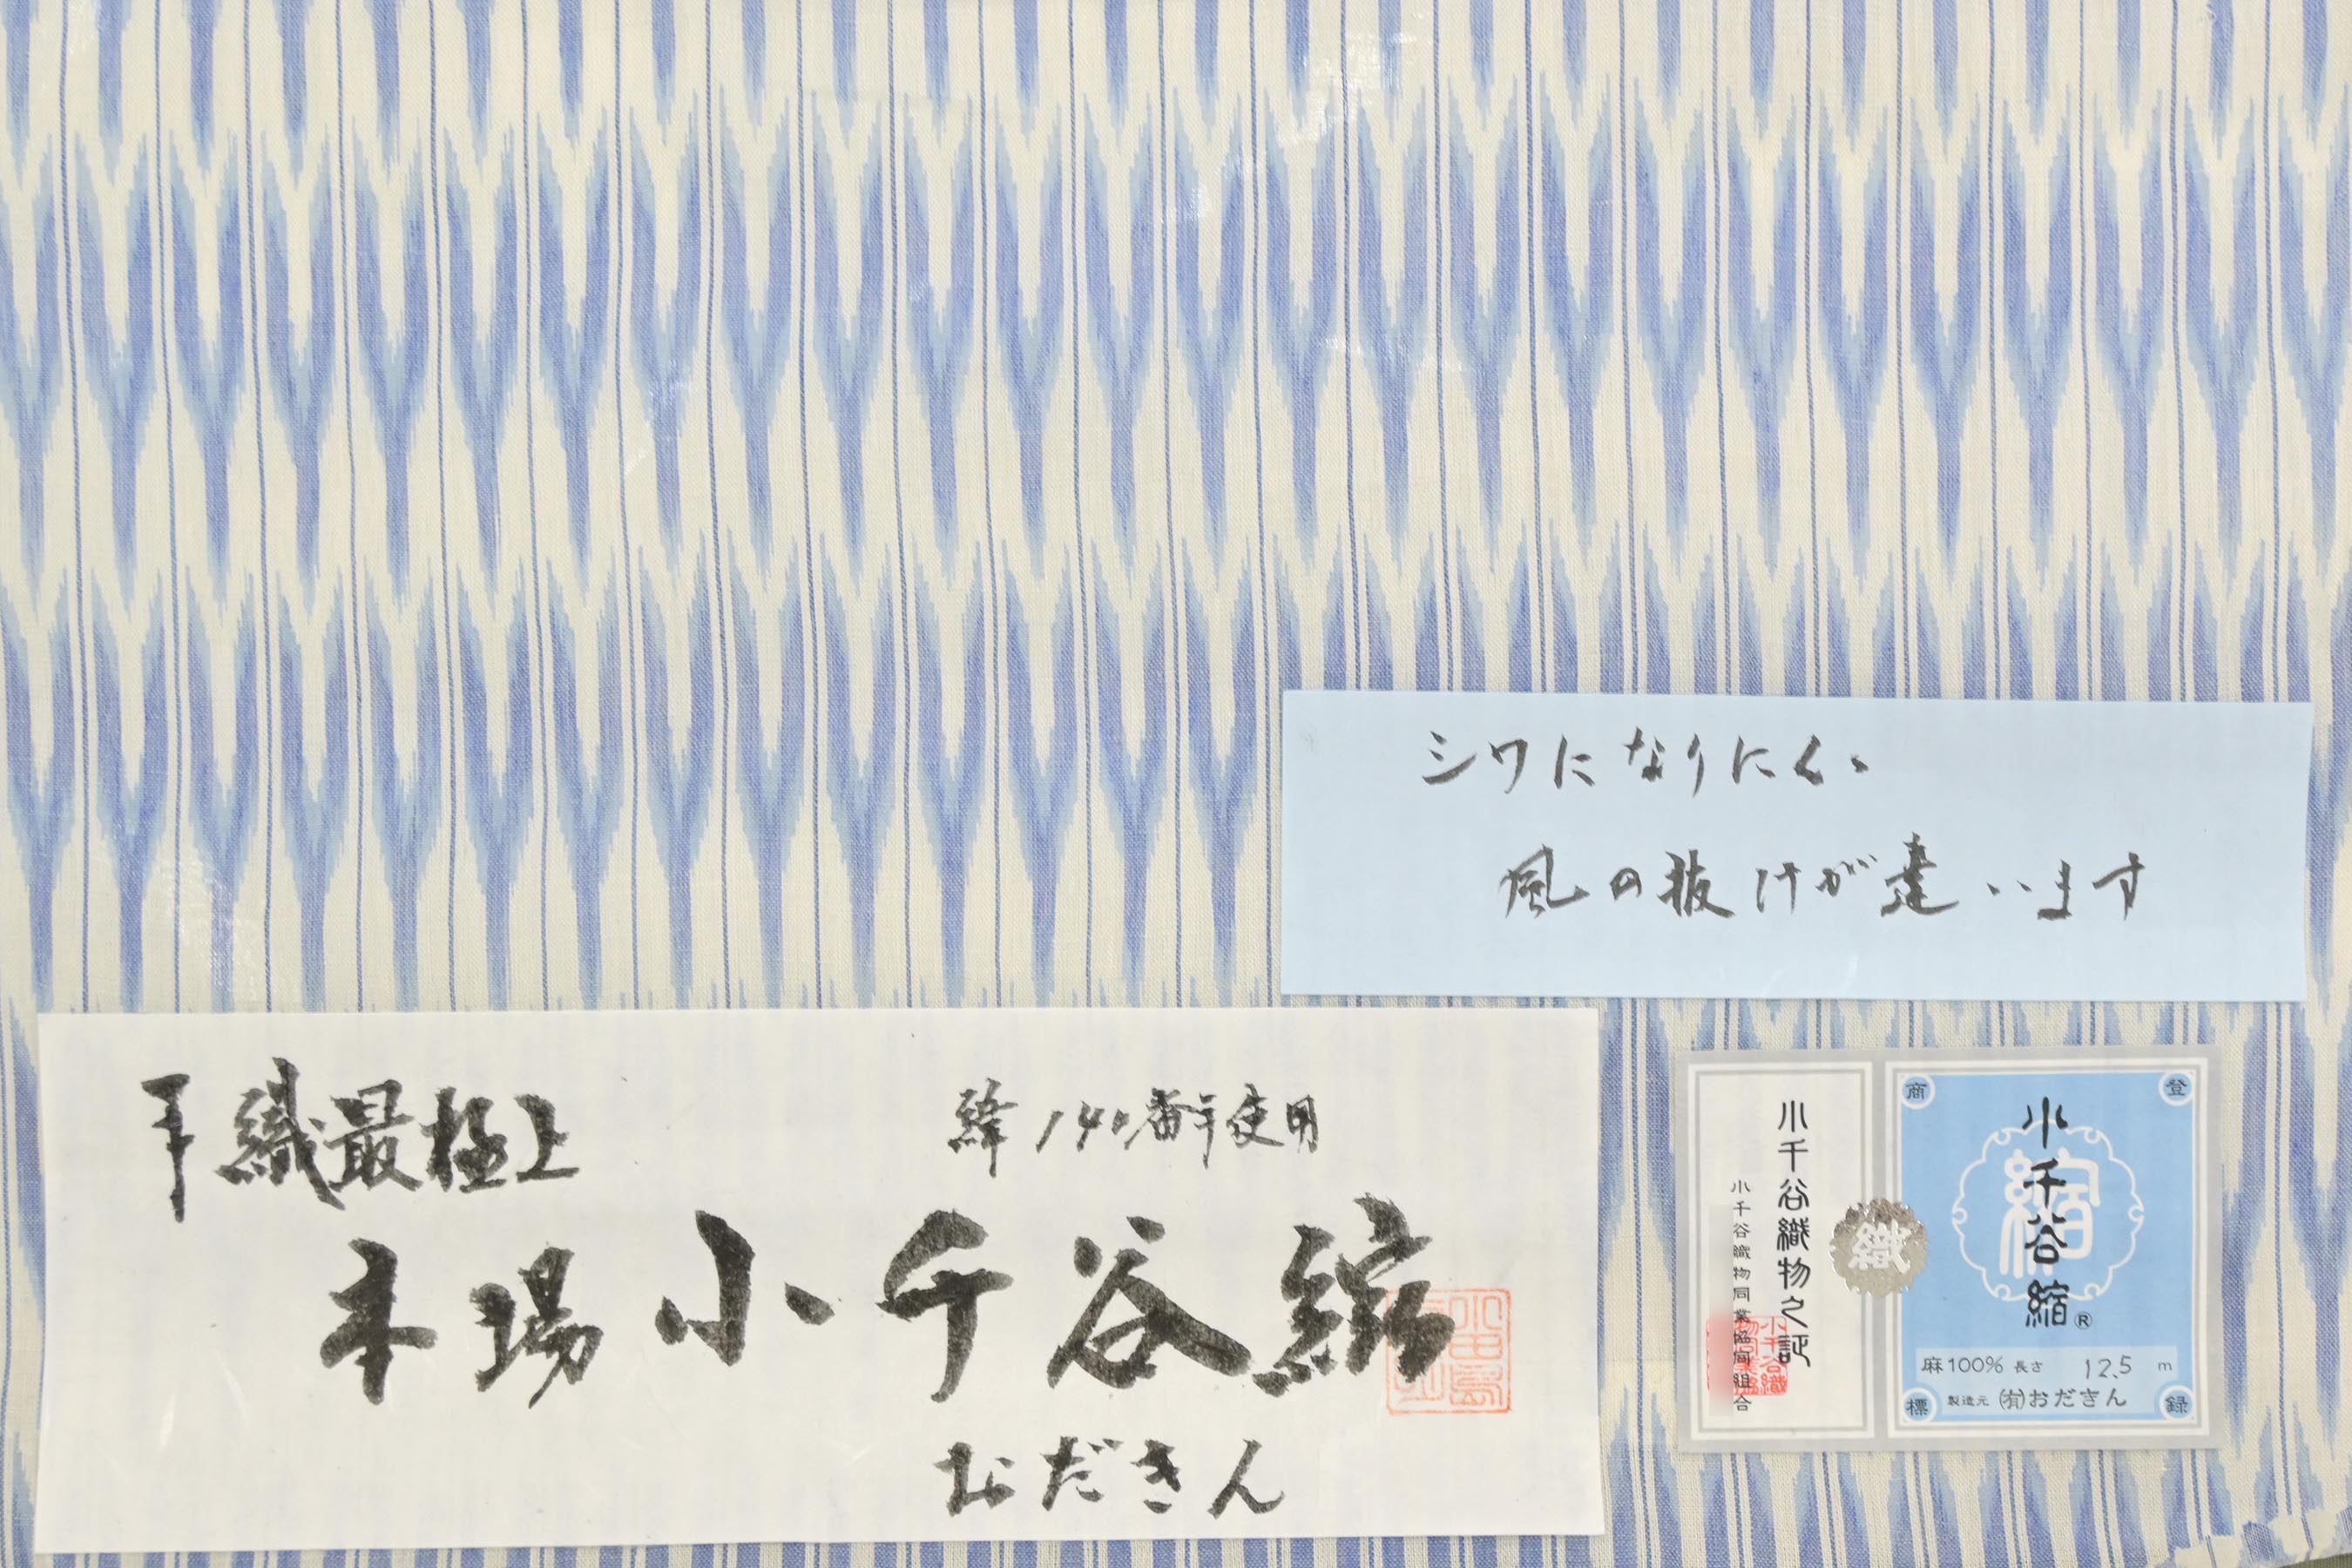 シワになりにくい
風の抜けが違います
手織最極上
緯140番手使用
本場小千谷縮
おだきん
小千谷織物之証
小千谷織物同業協同組合
織
商
登
縮
小千谷縮®
麻100% 長さ 12.5 m
標
製造元 (有)おだきん
録